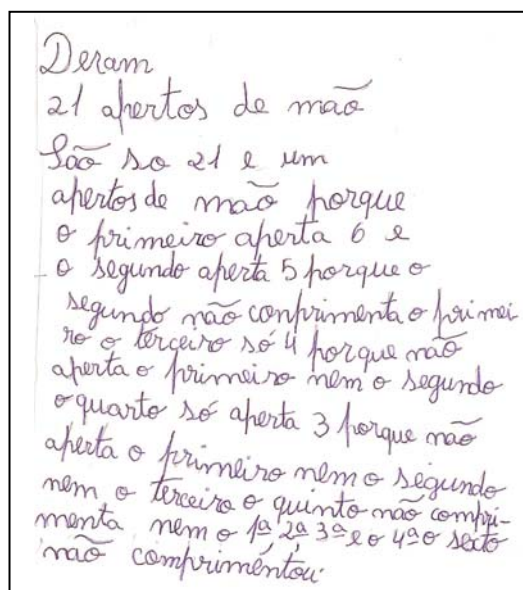 Deram
21 apertos de mão
São so 21 e um
apertos de mão porque
o primeiro aperta 6 e
o segundo aperta 5 porque o
segundo não conprimenta o primei
ro o terceiro só 4 porque não
aperta o primeiro nem o segundo
o quarto só aperta 3 porque não
aperta o primeiro nem o segundo
nem o terceiro o quinto não compri-
menta nem o 1ª 2ª 3ª e o 4ª o sexto
não comprimentou.